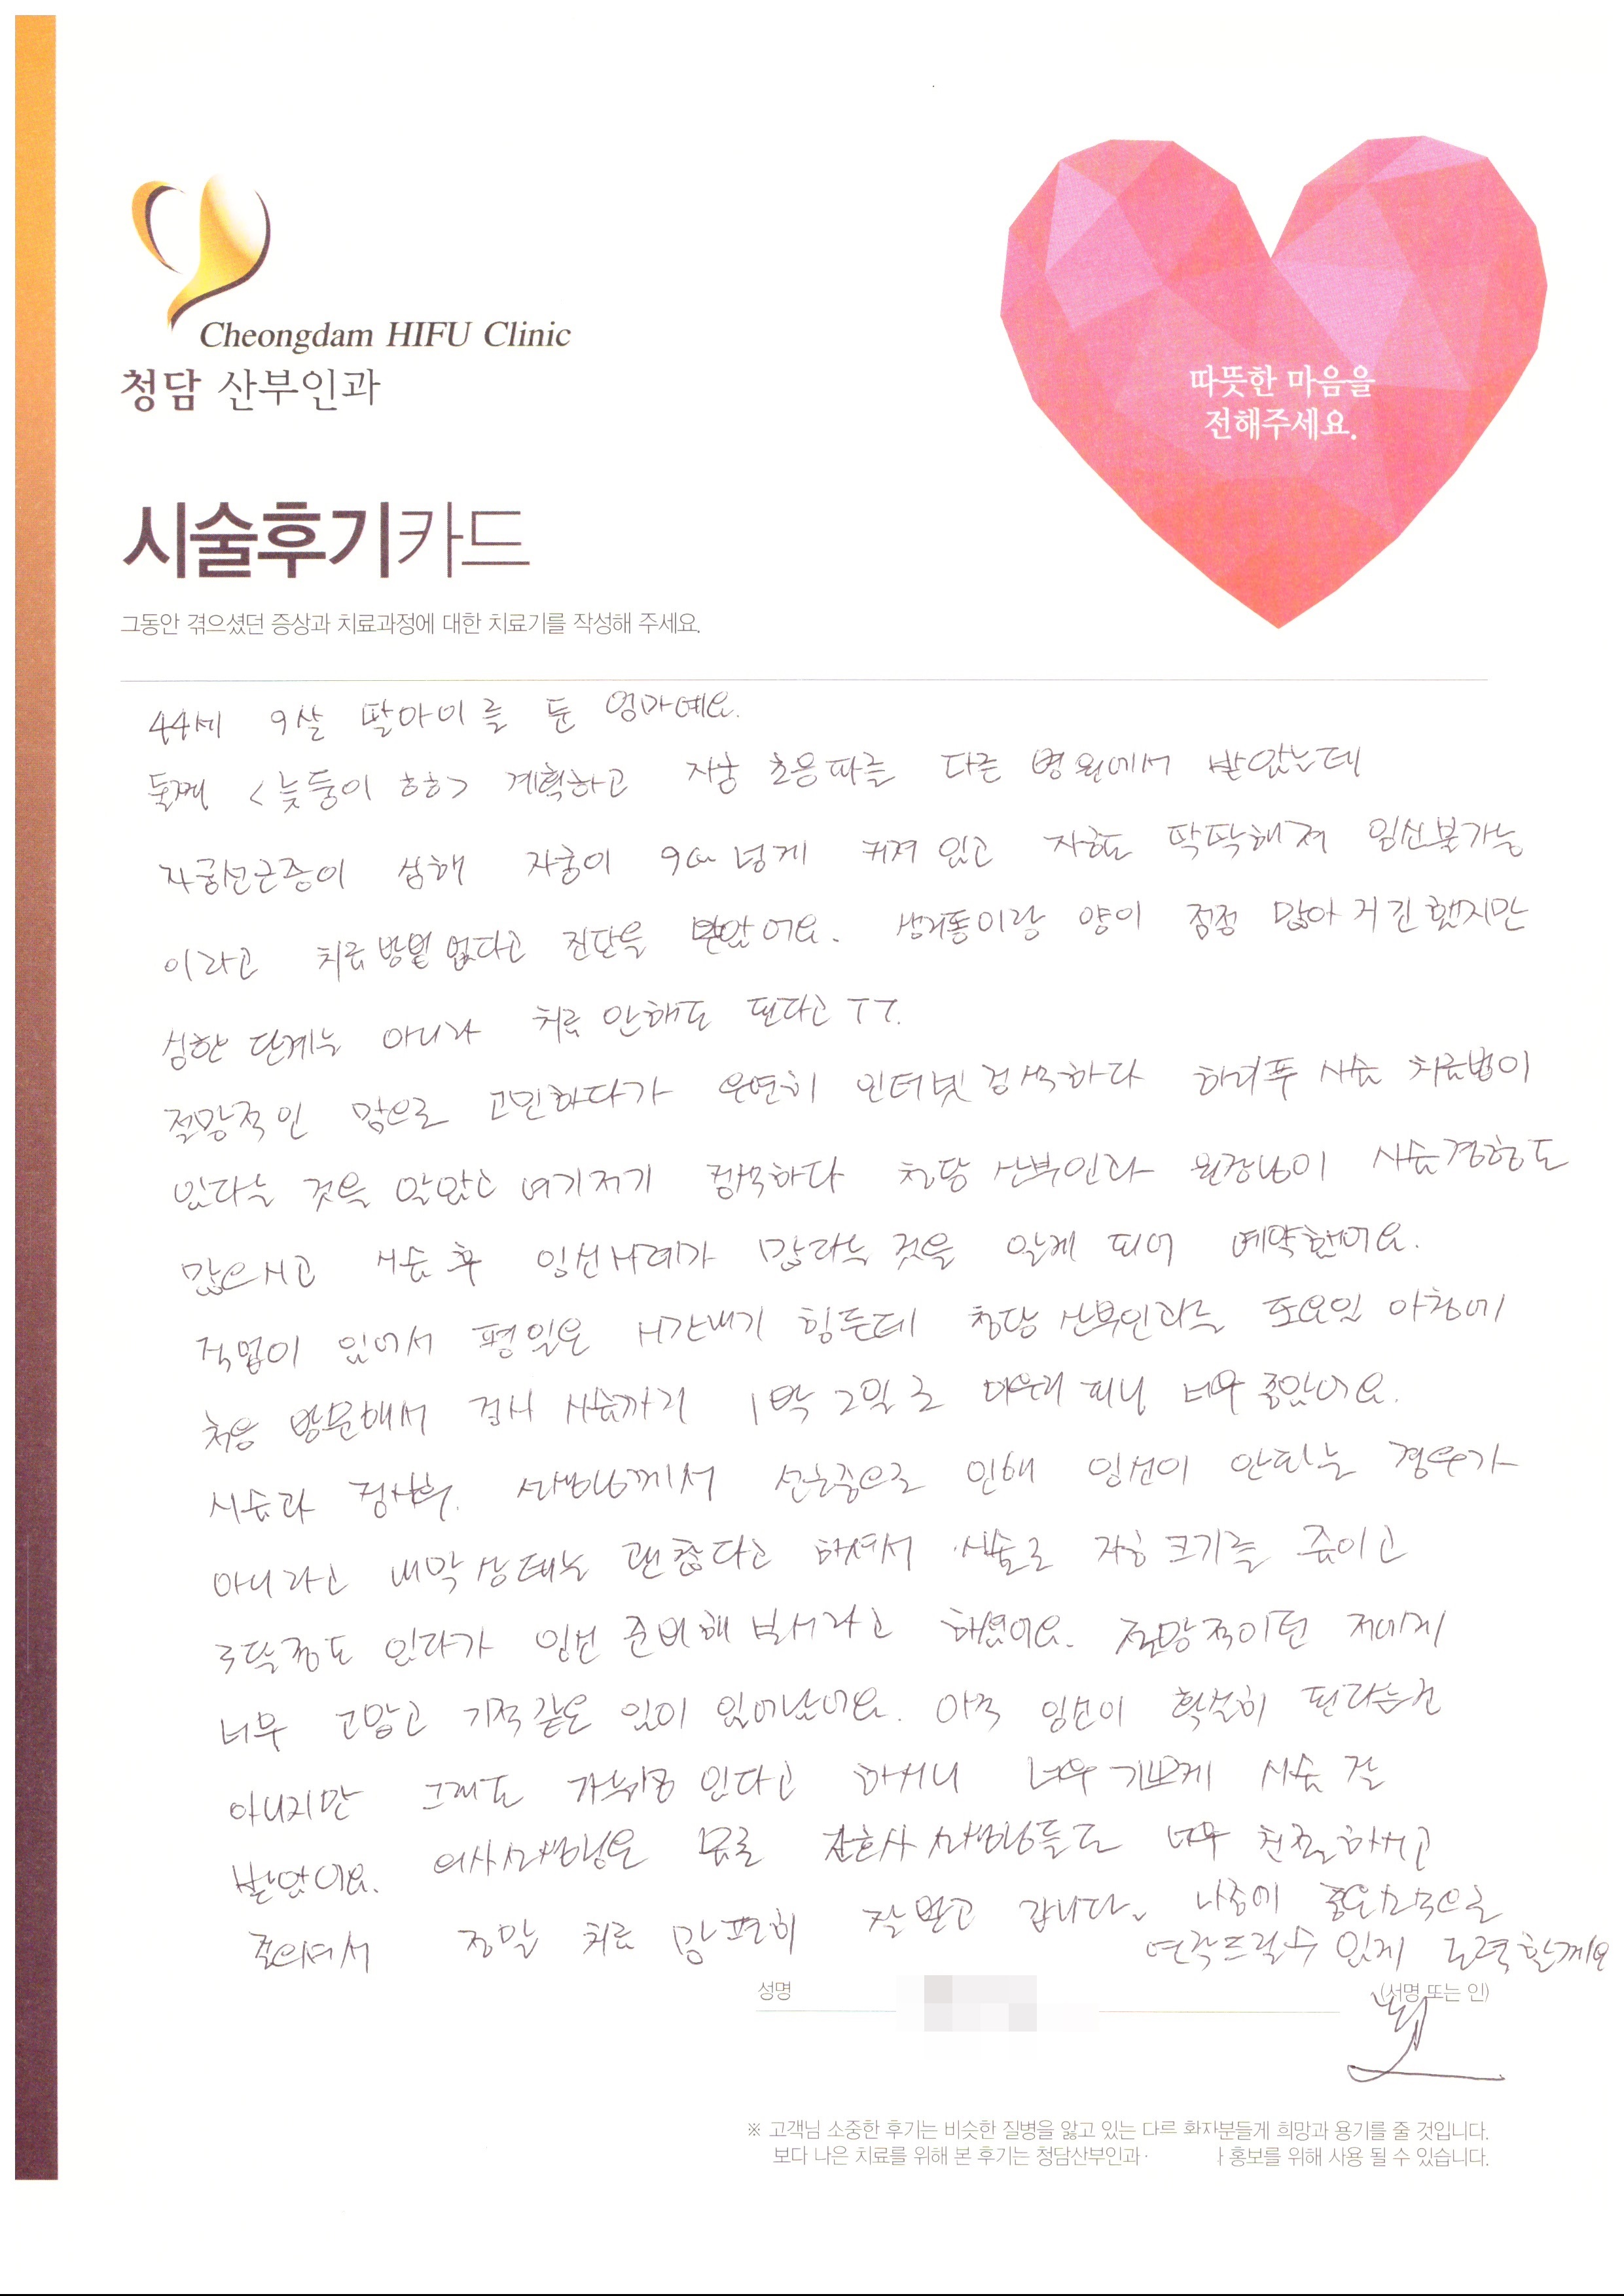 Cheongdam HIFU Clinic
청담 산부인과
따뜻한 마음을
전해주세요.
시술후기카드
그동안 겪으셨던 증상과 치료과정에 대한 치료기를 작성해 주세요.
44세 9살 딸아이를 둔 엄마예요.
둘째 <늦둥이 ㅎㅎ> 계획하고 자궁 초음파를 다른 병원에서 받았는데
자궁선근증이 심해 자궁이 9cm 넘게 커져 있고 자궁도 딱딱해져 임신불가능
이라고 치료방법 없다고 진단을 받았어요. 생리통이랑 양이 점점 많아 지긴 했지만
심한 단계는 아니라 치료 안해도 된다고 ㅜㅜ.
절망적인 맘으로 고민하다가 우연히 인터넷 검색하다 하이푸 시술 치료법이
있다는 것을 알았고 여기저기 검색하다 청담 산부인과 원장님이 시술경험도
많으시고 시술 후 임신사례가 많다는 것을 알게 되어 예약했어요.
직업이 있어서 평일은 시간내기 힘든데 청담 산부인과는 토요일 아침에
처음 방문해서 검사 시술까지 1박 2일로 마무리 되니 너무 좋았어요.
시술과 검사후. 선생님께서 선근증으로 인해 임신이 안되는 경우가
아니라고 내막상태는 괜찮다고 하셔서 시술로 자궁 크기를 줄이고
3달정도 있다가 임신 준비해 보시라고 하셨어요. 절망적이던 저에게
너무 고맙고 기적같은 일이 일어났어요. 아직 임신이 확실히 된다는건
아니지만 그래도 가능성 있다고 하시니 너무 기쁘게 시술 잘
받았어요. 의사선생님은 물론 간호사 선생님들도 너무 친절하시고
정말 치료 맘 편히 잘 받고 갑니다. 나중에 좋은소식으로
연락드릴수 있게 노력할께요
성명
(서명 또는 인)
※ 고객님 소중한 후기는 비슷한 질병을 앓고 있는 다른 환자분들게 희망과 용기를 줄 것입니다.
보다 나은 치료를 위해 본 후기는 청담산부인과 홍보를 위해 사용 될 수 있습니다.